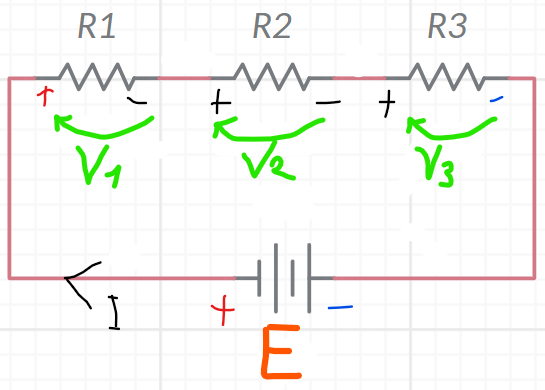 R1 R2 R3
+ − + − + −
V1 V2 V3
I
+ −
E